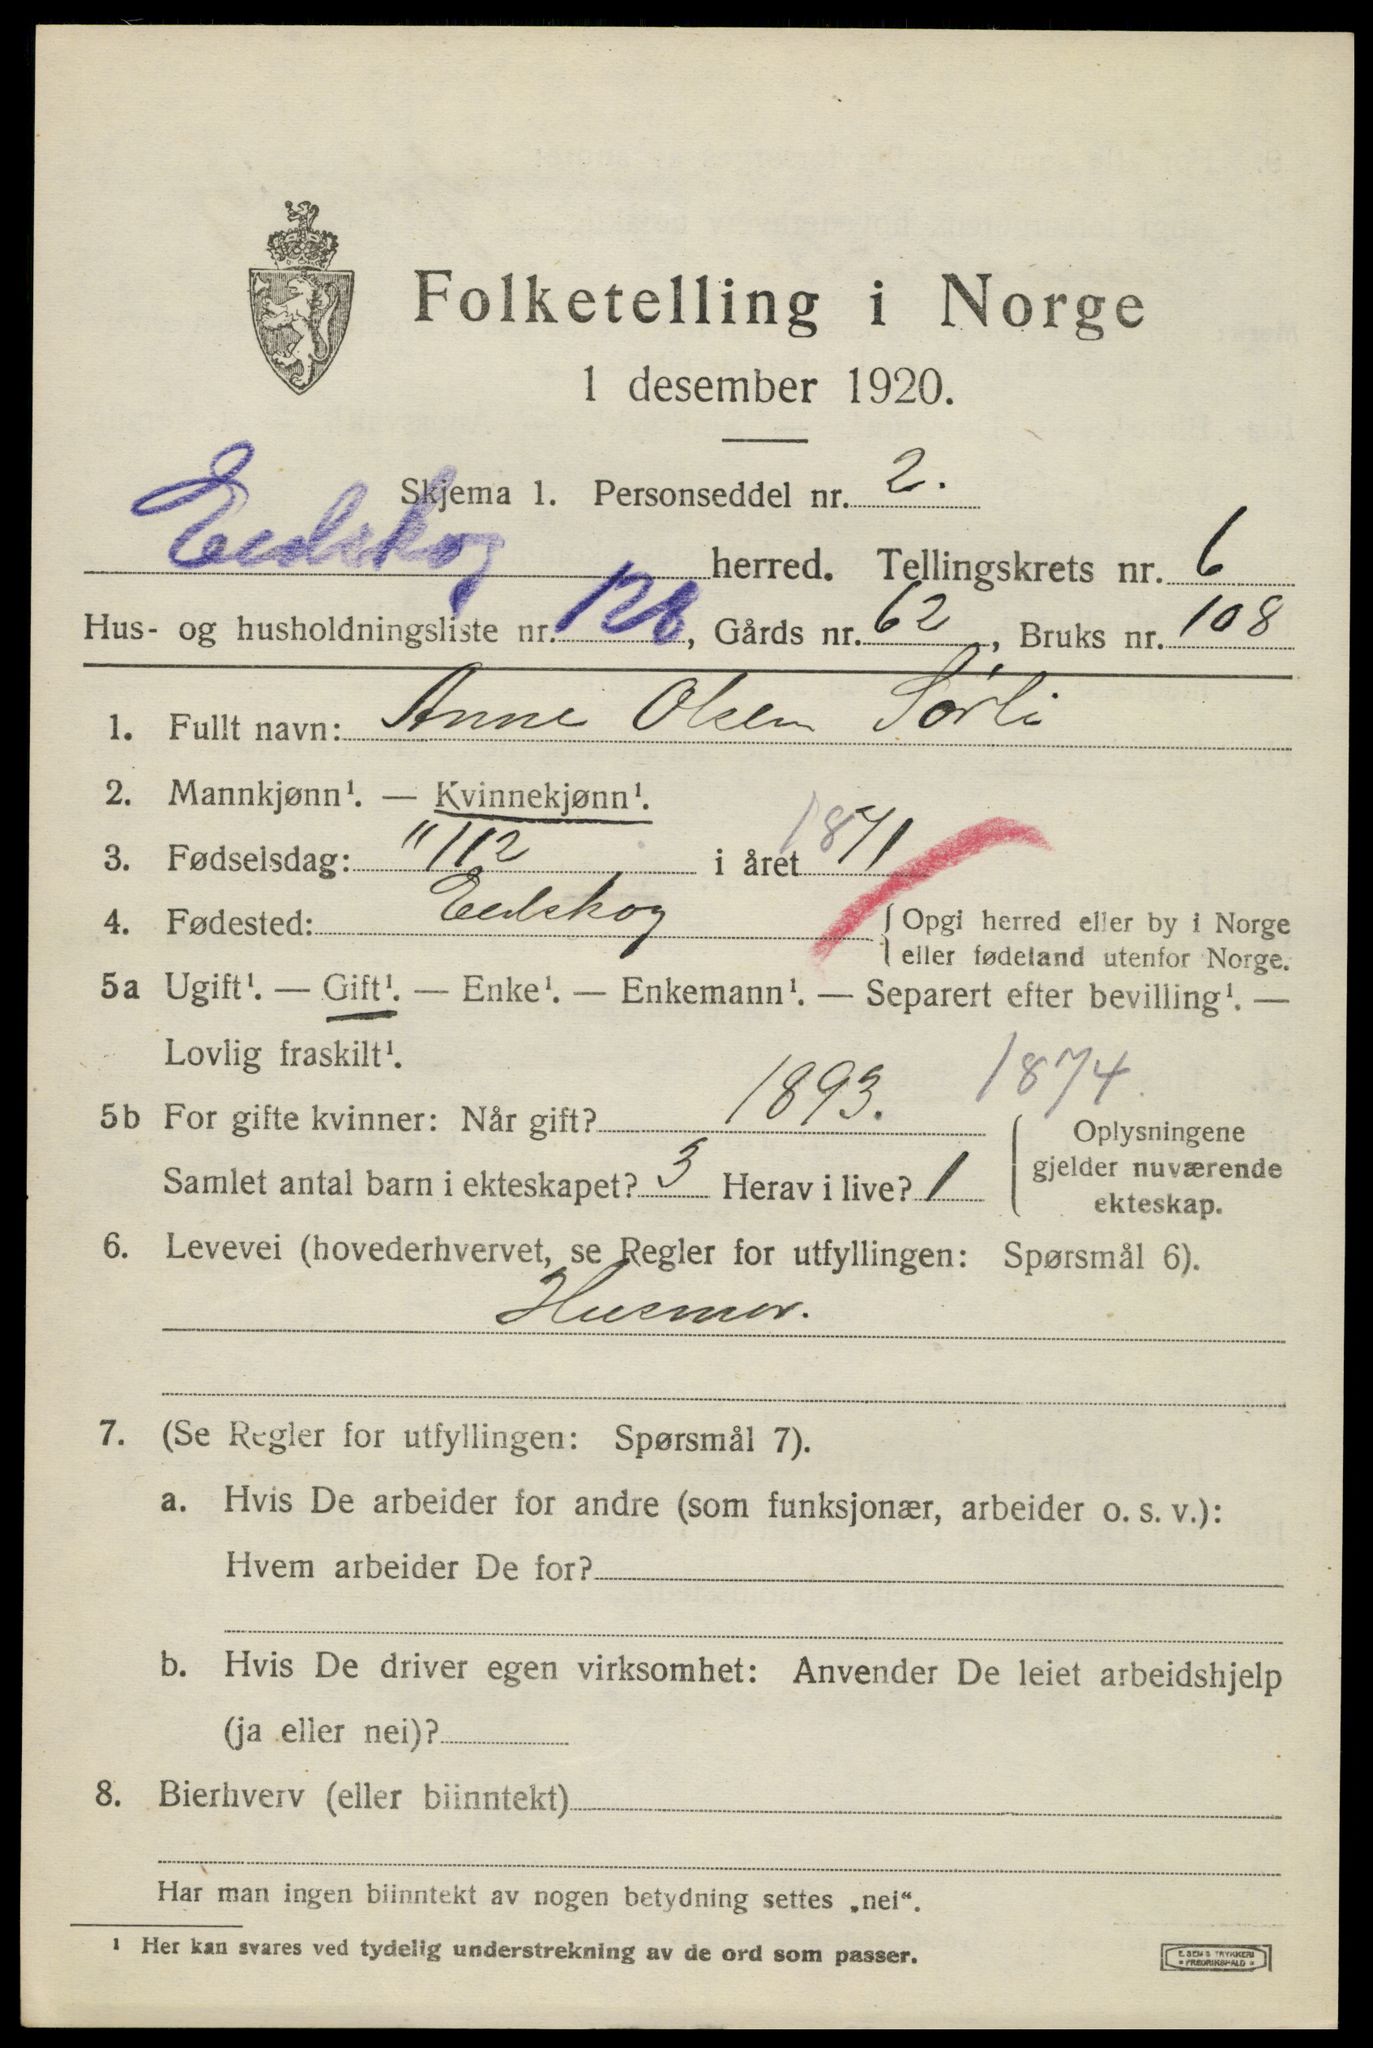 Folketelling i Norge
1 desember 1920.
Skjema 1. Personseddel nr. 2.
Eidskog herred. Tellingskrets nr. 6
Hus- og husholdningsliste nr. 128, Gårds nr. 62, Bruks nr. 108
1. Fullt navn: Anne Olsen Sørli
2. Mannkjønn¹. — Kvinnekjønn¹.
3. Fødselsdag: 11/12 i året 1871
4. Fødested: Eidskog { Opgi herred eller by i Norge
eller fødeland utenfor Norge.
5a Ugift¹. — Gift¹. — Enke¹. — Enkemann¹. — Separert efter bevilling¹. —
Lovlig fraskilt¹.
1874
5b For gifte kvinner: Når gift? 1893. { Oplysningene
gjelder nuværende
ekteskap.
Samlet antal barn i ekteskapet? 3 Herav i live? 1
6. Levevei (hovederhvervet, se Regler for utfyllingen: Spørsmål 6).
Husmor.
7. (Se Regler for utfyllingen: Spørsmål 7).
a. Hvis De arbeider for andre (som funksjonær, arbeider o. s. v.):
Hvem arbeider De for?
b. Hvis De driver egen virksomhet: Anvender De leiet arbeidshjelp
(ja eller nei)?
8. Bierhverv (eller biinntekt)
Har man ingen biinntekt av nogen betydning settes „nei“.
¹ Her kan svares ved tydelig understrekning av de ord som passer.
E. SEM'S TRYKKERI
• FREDRIKSHALD •